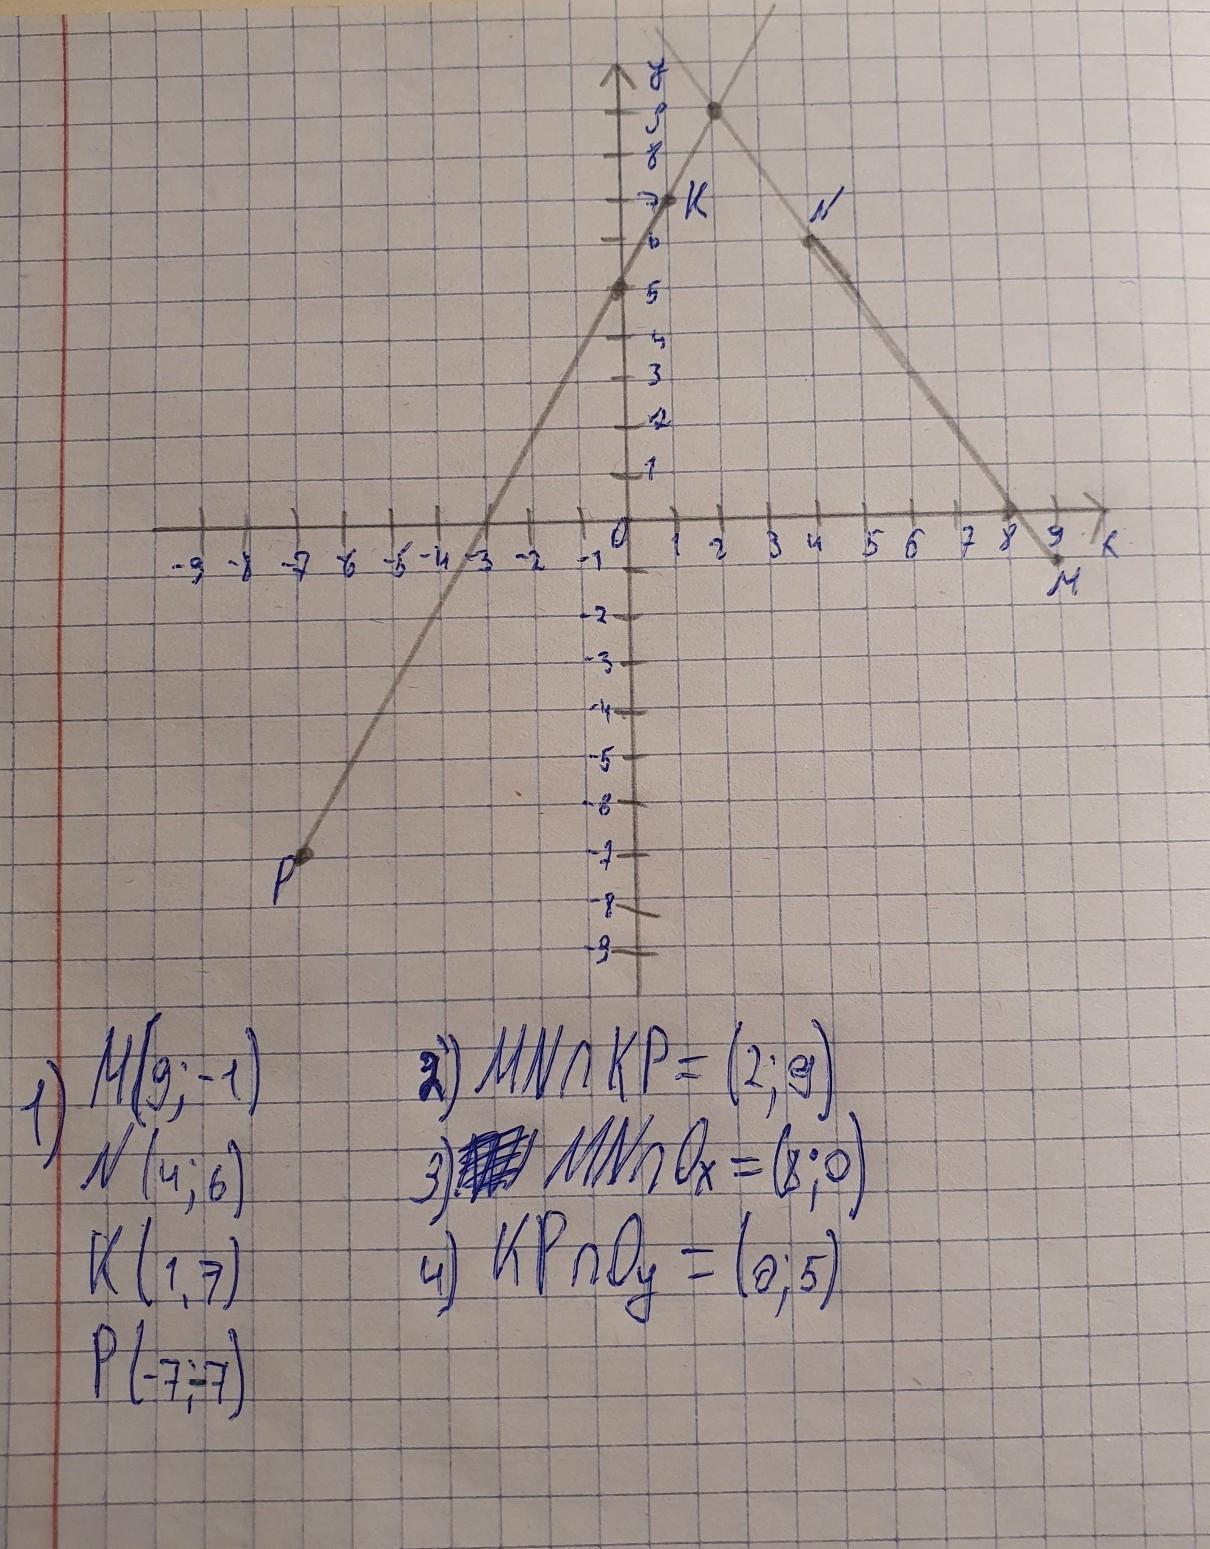 y
9
8
7 K
N
6
5
4
3
2
1
-9 -8 -7 -6 -5 -4 -3 -2 -1 0 1 2 3 4 5 6 7 8 9 x
M
-2
-3
-4
-5
-6
-7
P
-8
-9
1) M(9;-1)
N(4;6)
K(1,7)
P(-7;-7)
2) MN∩KP=(2;9)
3) MN∩Ox=(8;0)
4) KP∩Oy=(0;5)